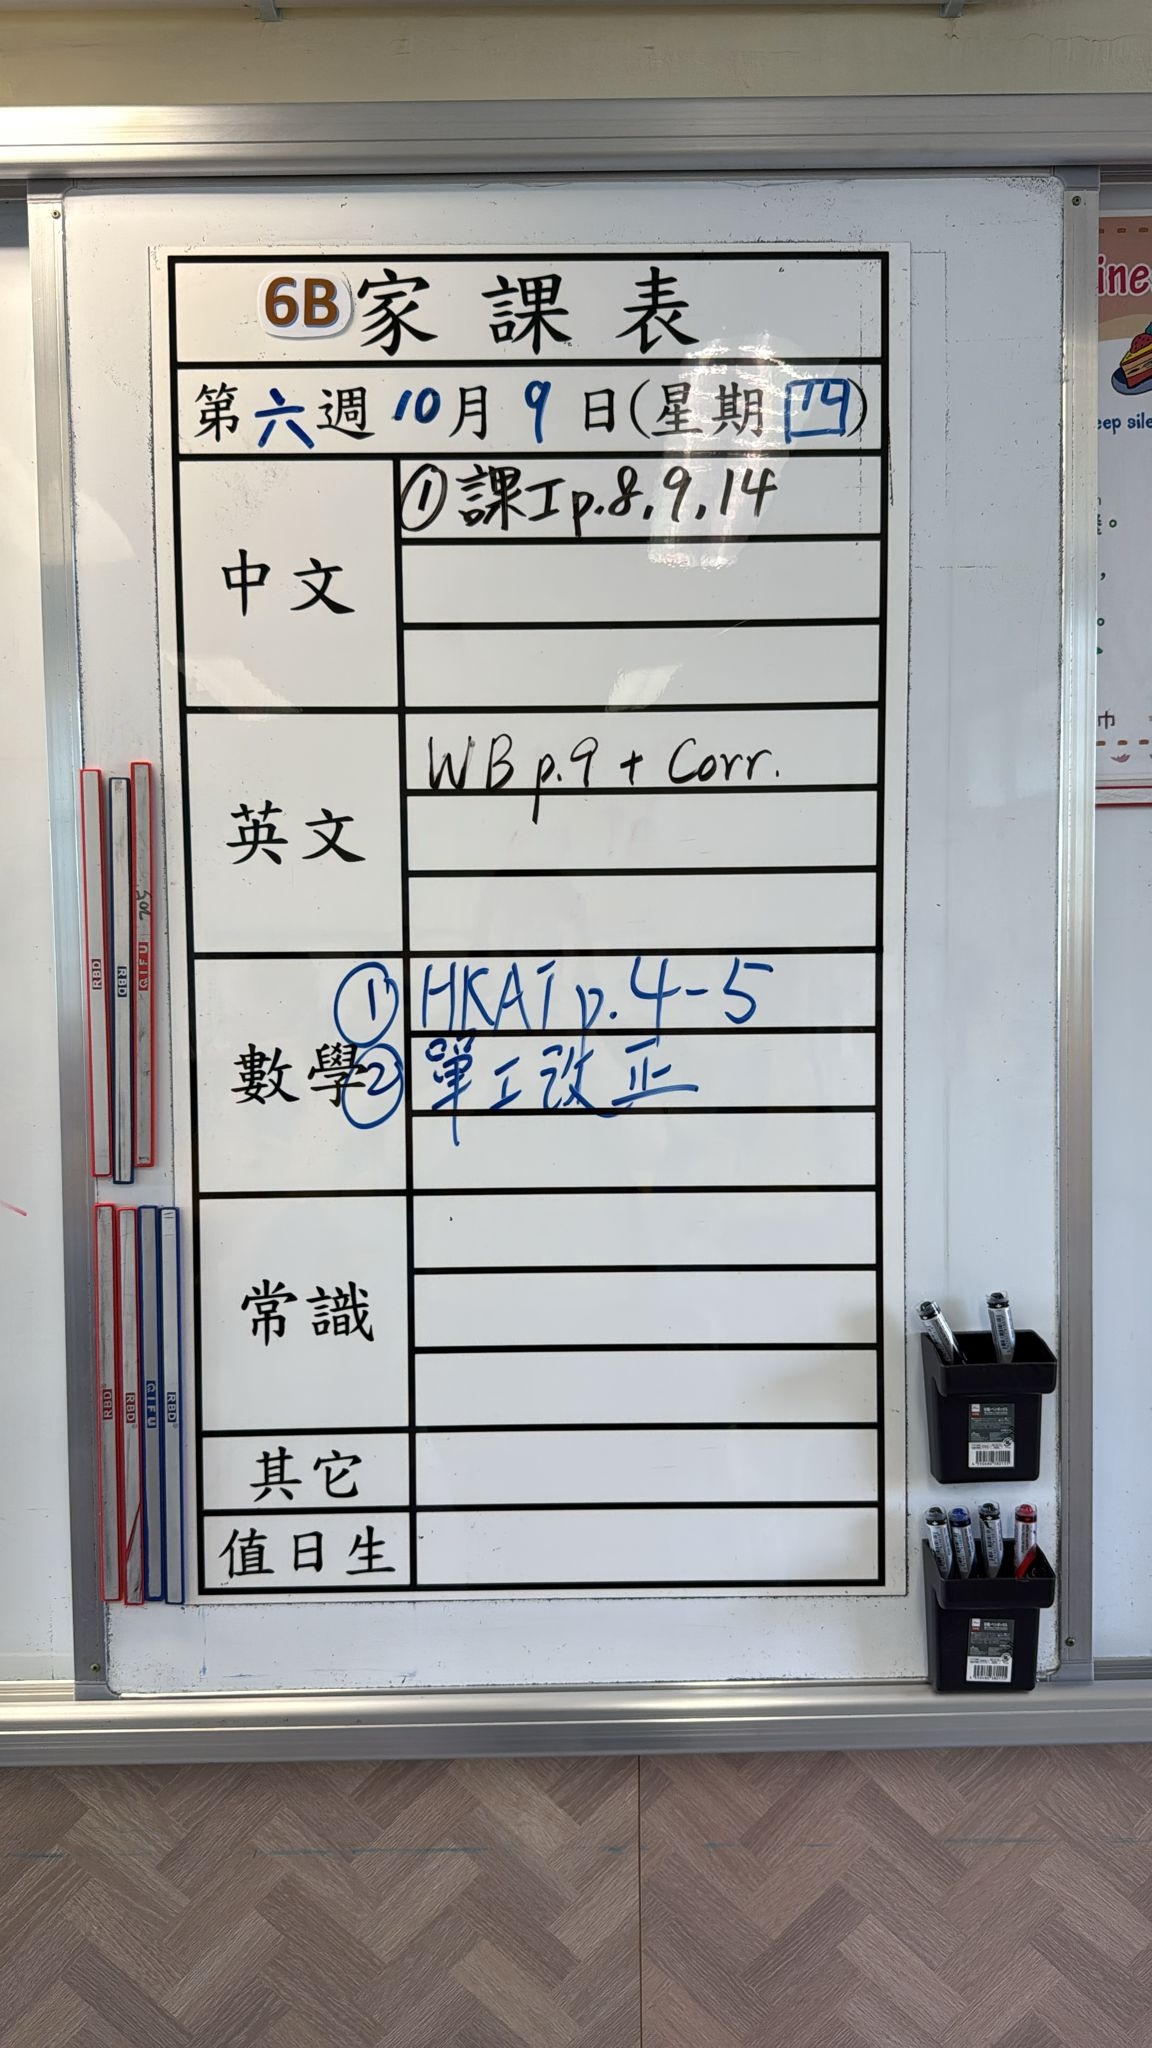 6B 家課表
第六週 10月9日(星期四)
中文
①課工p.8,9,14
英文
WB p.9 + Corr.
數學
①HKAT p.4-5
②單工改正
常識
其它
值日生
RBD
RBD
QIFU
205
RBD
RBD
QIFU
RBD
ine
eep sile
。
,
。
巾